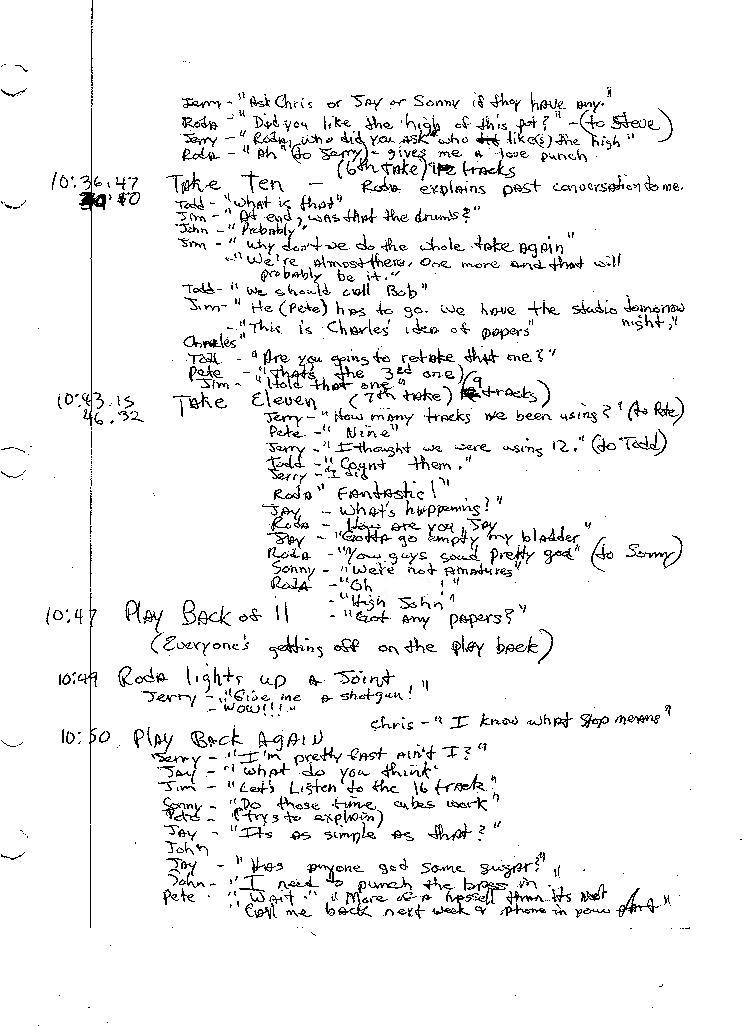 Jerry - "Ask Chris or Jay or Sonny if they have any."
Roda - "Did you like the high of this pot?" - (to Steve)
Jerry - "Roda, who did you ask who like(s) the high"
Roda - "Ah" (to Jerry) - gives me a love punch
(6th take) tracks
10:36.47 Take Ten - Roda explains past conversation to me.
40
Todd - "What is that"
Jim - "At end, was that the drums?"
John - "Probably"
Jim - "Why don't we do the whole take again"
- "We're almost there. One more and that will
probably be it."
Todd - "We should call Bob"
Jim - "He (Pete) has to go. We have the studio tomorrow
night,"
- "This is Charles' idea of papers"
Charles"
Todd - "Are you going to retake that one?"
Pete - "Thats the 3rd one)
Jim - "Hold that one"
10:43.15 Take Eleven (7th take) (9 tracks)
46.32
Jerry - "How many tracks we been using?" (to Pete)
Pete - "Nine"
Jerry - "I thought we were using 12." (to Todd)
Todd - "Count them."
Jerry - "I did
Roda "Fantastic!"
Jay - What's happening?"
Roda - How are you, Jay
Jay - "Gotta go empty my bladder"
Roda - "You guys soud pretty good" (to Sonny)
Sonny - "We're not Amatures"
Roda - "Oh !"
- "High John"
10:47 Play Back of 11 - "Got any papers?"
(Everyone's getting off on the play back)
10:49 Roda lights up a Joint
Jerry - "Give me a shotgun!"
- WOW!!!"
Chris - "I know what stop means"
10:50 Play Back Again
Jerry - "I'm pretty fast ain't I?"
Jay - "What do you think"
Jim - "Let's Listen to the 16 track."
Sonny - "Do those time cubes work"
Pete - (trys to explain)
Jay - "Its as simple as that?"
John
Jay - "Has anyone god some sugar?"
John - "I need to punch the brass in.
Pete - "Wait." "More of a hassell than its
"Call me back next week & phone in your part"